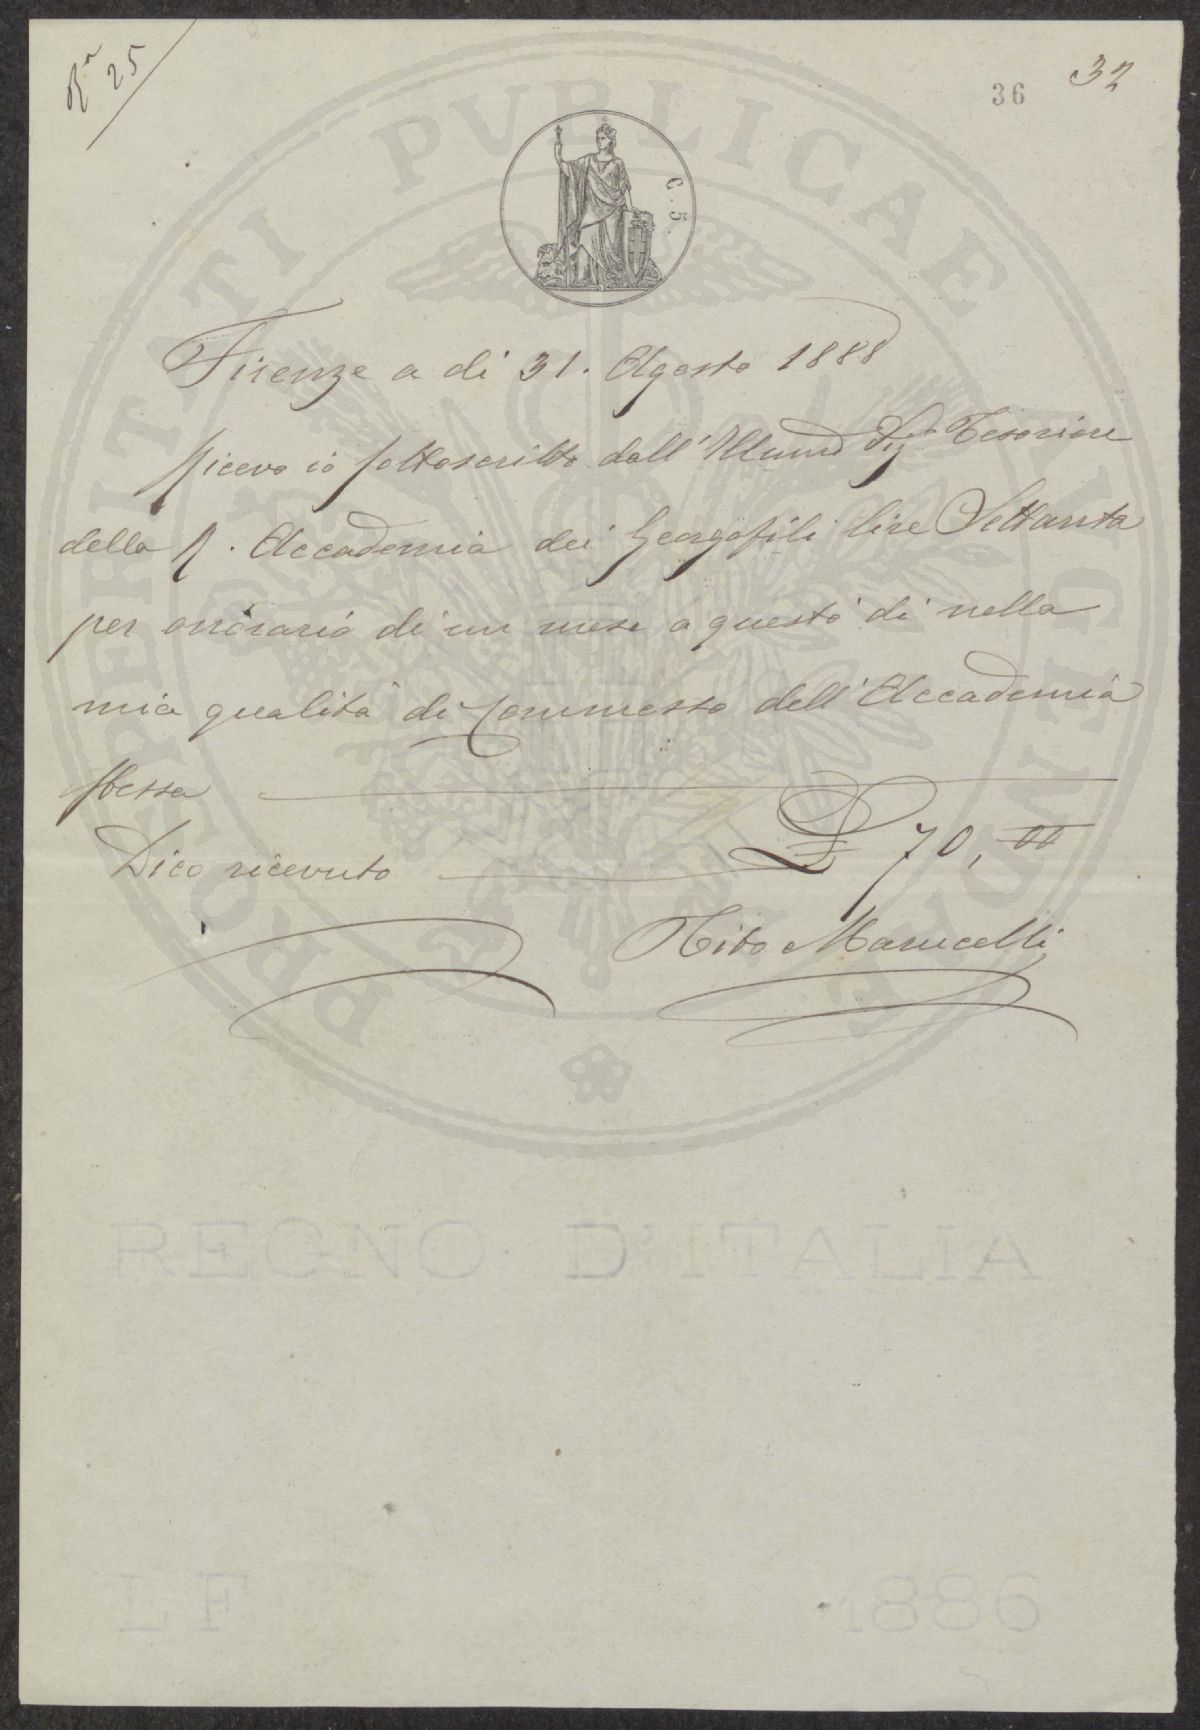 25
36 32
PROSPERITATI PVBLICAE VECTIGALE
C. 5.
Firenze a dì 31. Agosto 1888
Ricevo io sottoscritto dall'Illumo Sigr Tesoriere
della R. Accademia dei Georgofili lire Settanta
per onorario di un mese a questo dì nella
mia qualità di Commesso dell'Accademia
stessa
Dico ricevuto £ 70,00
Tito Marucelli
REGNO D'ITALIA
LF 1886